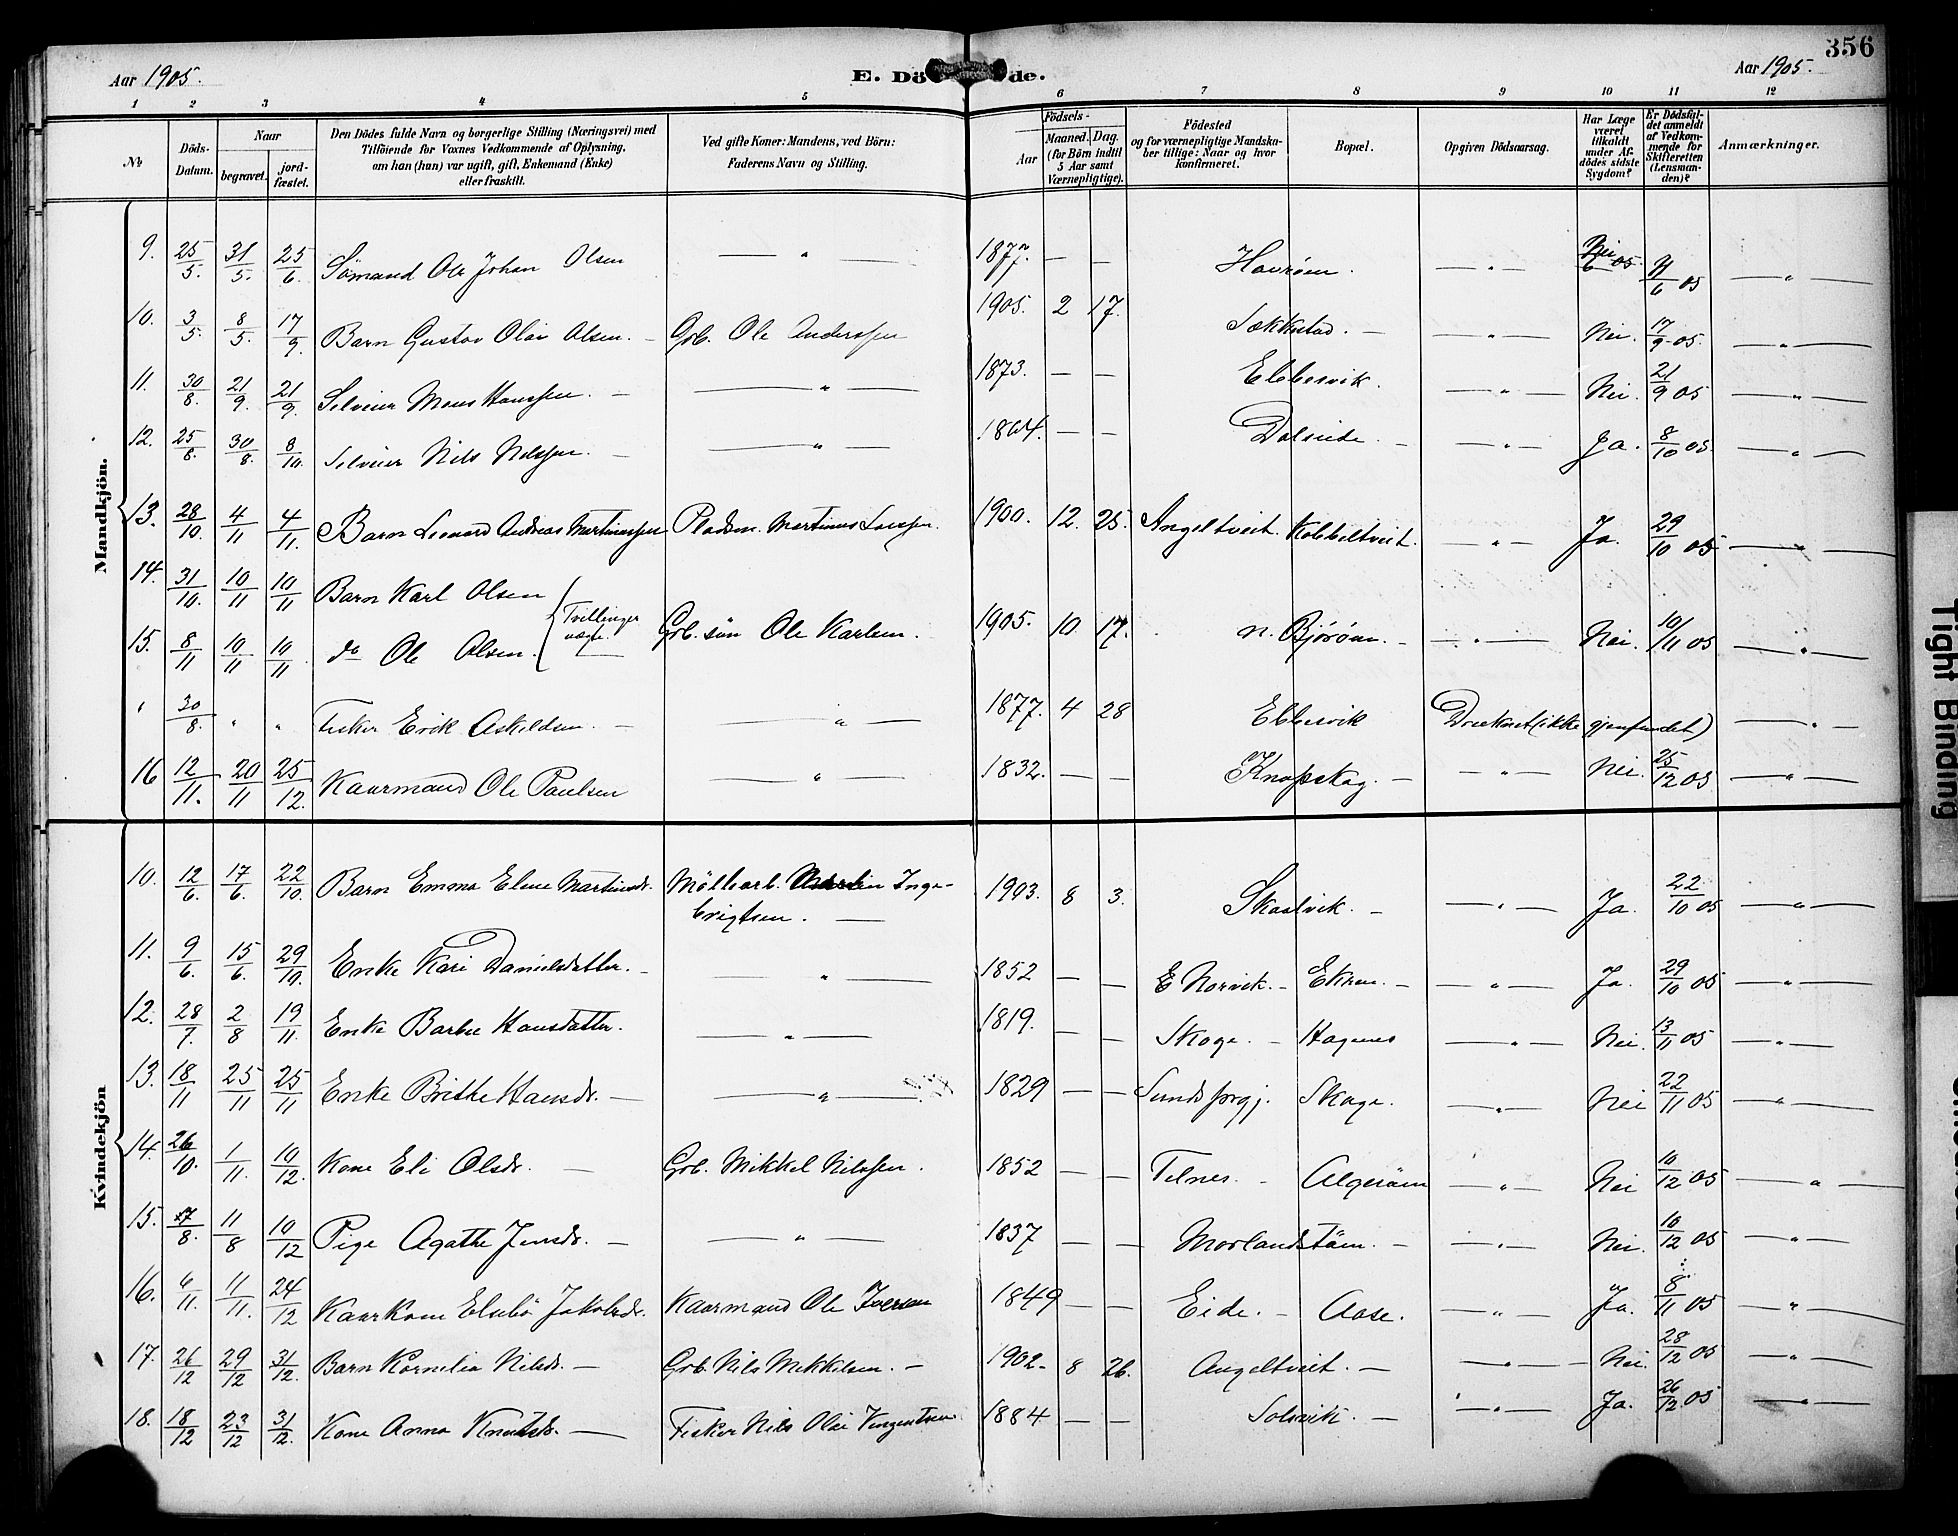 356
Aar 1905. E. Dö de. Aar 1905.
1 2 3 4 5 6 7 8 9 10 11 12
№ Döds-Datum. Naar begravet. jord-fæstet. Den Dödes fulde Navn og borgerlige Stilling (Næringsvei) med Tilföiende for Voxnes Vedkommende af Oplysning, om han (hun) var ugift, gift, Enkemand (Enke) eller fraskilt. Ved gifte Koner: Mandens, ved Börn: Faderens Navn og Stilling. Aar Födsels- Maaned. Dag. (for Börn indtil 5 Aar samt Værnepligtige). Födested og for værnepligtige Mandska-ber tillige: Naar og hvor konfirmeret. Bopæl. Opgiven Dödsaarsag. Har Læge været tilkaldt under Af-dödes sidste Sygdom? Er Dödsfal-det anmeldt af Vedkom-mende for Skifteretten (Lensman-den)? Anmærkninger.
Mandkjön.
9. 25/5. 31/5. 25/6. Sömand Ole Johan Olsen — " — 1877. — — Havröen. — " — Nei. /6 05 — " —
10. 3/5. 8/5. 17/9. Barn Gustav Olai Olsen. — Grb. Ole Anderssen 1905. 2 17. Sækkstad. — — " — Nei. 17/9 05. — " —
11. 30/8. 21/9. 21/9. Selveier Mons Hanssen. — — " — 1873. — — Ebbesvik. — " — Nei. 21/9 05 — " —
12. 25/8. 30/8. 8/10. Selveier Nils Nilssen. — — " — 1864. — — Dalseide. — — " — Ja. 8/10 05. — " —
13. 28/10. 4/11 4/11. Barn Leonard Andreas Martinussen Pladsm. Martinus Larssen. 1900. 12. 25. Angeltveit. Kobbeltveit. — " — Ja. 29/10 05 — " —
14. 31/10. 10/11 10/11 Barn Karl Olsen
Tvillinger uægte.
15. 8/11 10/11 10/11 do Ole Olsen. Grb. sön Ole Karlsen. 1905. 10 17. n. Björöen. — — " — Nei. 10/11 05 — " —
" 30/8. " " Fisker Erik Askildsen. — — " — 1877. 4 28 Ebbesvik Druknet (ikke gjenfundet) — " —
16 12/11. 20/11 25/12. Kaarmand Ole Paulsen — " — 1832. — — Knapskog. — — " — Nei. 25/12 05 — " —
Kvindekjön
10. 12/6. 17/6. 22/10. Barn Emma Eline Martinsdr. Möllearb. Martin Inge-
brigtsen. — 1903. 8 3. Skaalvik. — — " — Ja. 22/10 05 — " —
11. 9/6. 15/6. 29/10. Enke Kari Danielsdatter. — — " — 1852 — — E Norvik. — Ekren. — — " — Ja. 29/10 05 — " —
12. 28/7. 2/8 19/11. Enke Barbro Hansdatter. — " — 1819. — — Skoge. — Hagenes — " — Nei. 13/11 05 — " —
13. 18/11 25/11 25/11 Enke Brithe Hansdr. — — " — 1829 — — Sunds prgj. Skoge. — " — Nei 22/11 05 — " —
14. 26/10. 1/11. 10/12. Kone Eli Olsdr. — Grb. Mikkel Nilssen. 1852 — — Telnes. — Algeröen — " — Nei 10/12 05 — " —
15. 7/8. 11/8 10/12 Pige Agathe Jensdr. — — " — 1837 — — Morlandstöen. — — " — Nei. 10/12 05 — " —
16. 6/11. 11/11. 24/12 Kaarkone Elsebö Jakobsdr. Kaarmand Ole Iversen 1849 — — Eide. — Aase. — " — Ja. 8/11 05 — " —
17. 26/12 29/12 31/12. Barn Kornelia Nilsdr. — Grb. Nils Mikkelsen. — 1902. 8 26. Angeltveit. — — " — Nei. 28/12 05 — " —
18. 18/12 23/12 31/12. Kone Anna Knutsdr. — Fisker Nils Olai Vingentsen 1884 — — Solsvik. — — " — Ja. 26/12 05 — " —
Tight Binding